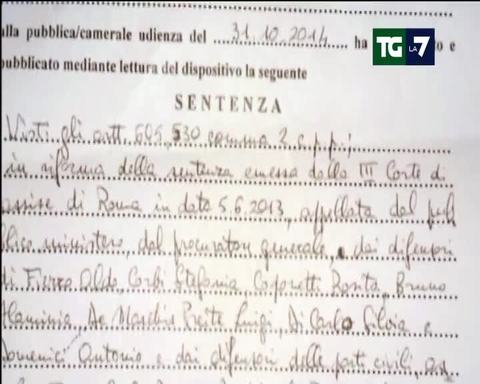 alla pubblica/camerale udienza del 31.10.2014 ha
TG LA 7
o e
pubblicato mediante lettura del dispositivo la seguente
SENTENZA
Visti gli artt. 605, 530 comma 2 c.p.p.;
in riforma della sentenza emessa dalla III Corte di
assise di Roma in data 5.6.2013, appellata dal pub
blico ministero, dal procuratore generale, dai difensori
di Fierro Aldo, Corbi Stefania, Caporetti Rosita, Bruno
Flaminia, De Marchis Preite Luigi, Di Carlo Silvia e
Domenici Antonio e dai difensori delle parti civili,